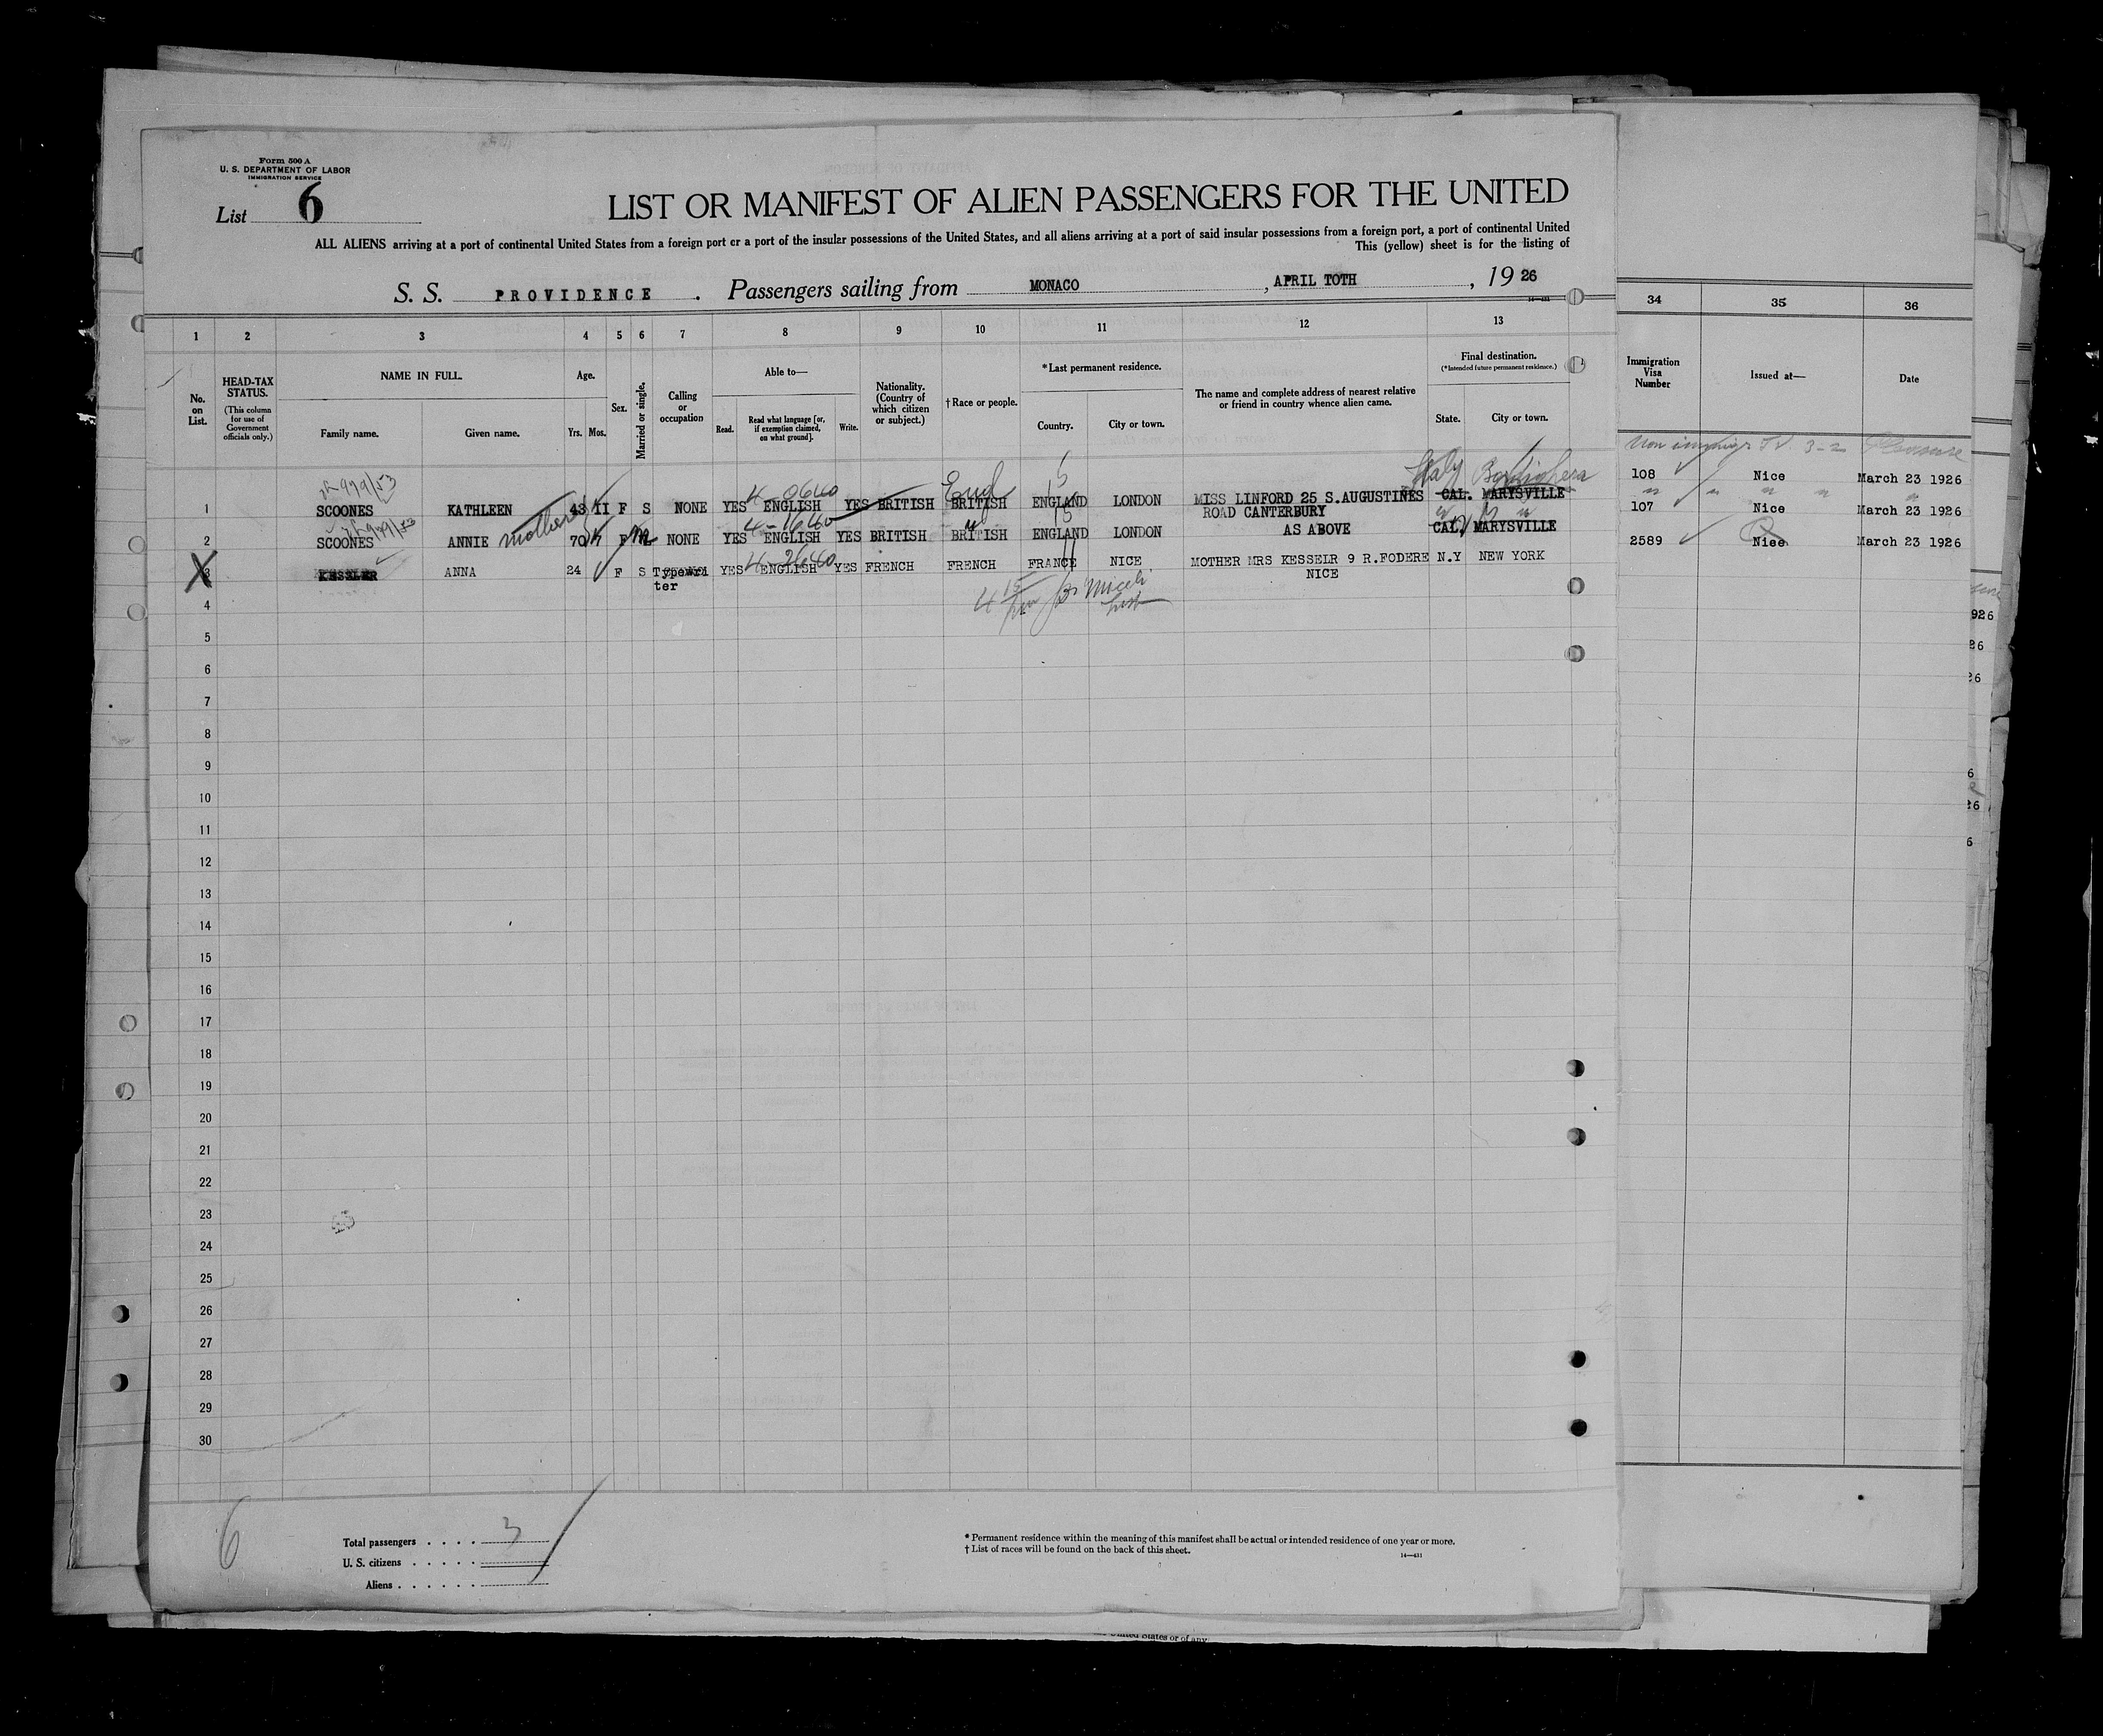 Form 500 A
U. S. DEPARTMENT OF LABOR
IMMIGRATION SERVICE
List 6
LIST OR MANIFEST OF ALIEN PASSENGERS FOR THE UNITED
ALL ALIENS arriving at a port of continental United States from a foreign port or a port of the insular possessions of the United States, and all aliens arriving at a port of said insular possessions from a foreign port, a port of continental United
This (yellow) sheet is for the listing of
S. S. PROVIDENCE . Passengers sailing from MONACO , APRIL TOTH , 19 26
14—431
1 2 3 4 5 6 7 8 9 10 11 12 13 34 35 36
No. on List.
HEAD-TAX STATUS.
(This column for use of Government officials only.)
NAME IN FULL.
Family name. Given name.
Age.
Yrs. Mos.
Sex.
Married or single.
Calling or occupation
Able to—
Read. Read what language [or, if exemption claimed, on what ground]. Write.
Nationality. (Country of which citizen or subject.)
† Race or people.
* Last permanent residence.
Country. City or town.
The name and complete address of nearest relative or friend in country whence alien came.
Final destination.
(*Intended future permanent residence.)
State. City or town.
Immigration Visa Number
Issued at—
Date
Pleasure
Italy Bordighera
4-0640 Engl
1 SCOONES KATHLEEN 43 II F S NONE YES ENGLISH YES BRITISH BRITISH ENGLAND LONDON MISS LINFORD 25 S.AUGUSTINES CAL. MARYSVILLE 108 Nice March 23 1926
ROAD CANTERBURY
mother 4-1640
2 SCOONES ANNIE 70 F M NONE YES ENGLISH YES BRITISH BRITISH ENGLAND LONDON AS ABOVE CAL. MARYSVILLE 107 Nice March 23 1926
4-2640
3 KESSLER ANNA 24 F S Typewri YES ENGLISH YES FRENCH FRENCH FRANCE NICE MOTHER MRS KESSELR 9 R.FODERE N.Y NEW YORK 2589 Nice March 23 1926
ter NICE
4
5
6
7
8
9
10
11
12
13
14
15
16
17
18
19
20
21
22
23
24
25
26
27
28
29
30
926
26
26
6
26
6
6
Total passengers . . . . 3
U. S. citizens . . . . .
Aliens . . . . . .
* Permanent residence within the meaning of this manifest shall be actual or intended residence of one year or more.
† List of races will be found on the back of this sheet.
14—431
United States or of any